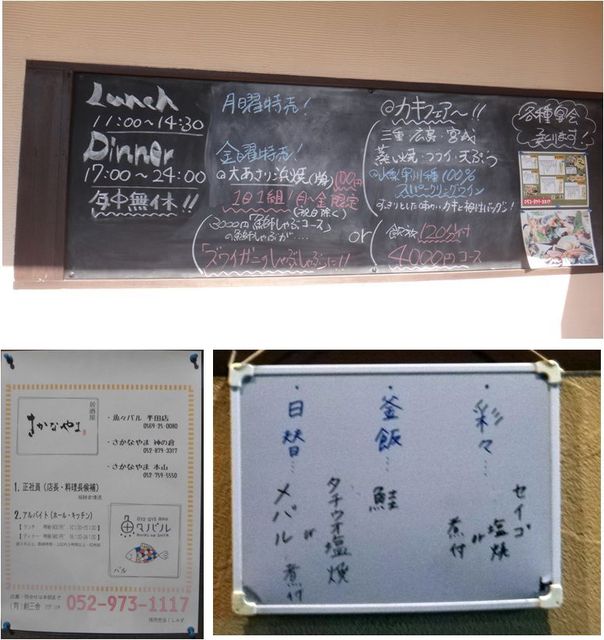 Lunch
11:00～14:30
Dinner
17:00～24:00
年中無休!!
月曜特売!
金曜特売!
◎大あさり浜焼(1ヶ) 100円
1日1組! 月～金限定
(祝日除く)
3000円「魚しゃぶコース」
の魚しゃぶが…
「ズワイガニのしゃぶしゃぶに!!
or
◎カキフェア～!!
三重・広島・宮城
蒸し焼・フライ・天ぷら
スパークリングワイン
飲放 120分付
4000円コース
各種宴会
承ります!
052-879-3317
居酒屋
さかなやま
・魚々バル 半田店
0569-25-0080
・さかなやま 神の倉
052-879-3317
・さかなやま 本山
052-759-5550
1. 正社員 (店長・料理長候補)
2. アルバイト (ホール・キッチン)
魚々バル
バル
052-973-1117
・彩々…
セイゴ
塩焼
or
煮付
・釜飯…
鮭
・日替…
タチウオ塩焼
or
メバル煮付